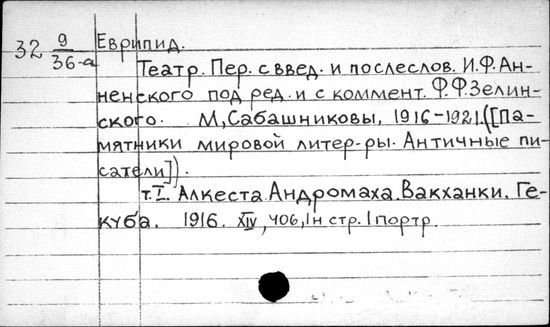 32 9/36-а Еврипид.
Театр. Пер. с введ. и послеслов. И.Ф.Ан-
ненского под ред. и с коммент. Ф.Ф.Зелин-
ского. М,Сабашниковы, 1916-1921.([Па-
мятники мировой литер-ры. Античные пи-
сатели]).
т.I. Алкеста.Андромаха.Вакханки. Ге-
куба. 1916. XIV, 406,1н стр. 1 портр.